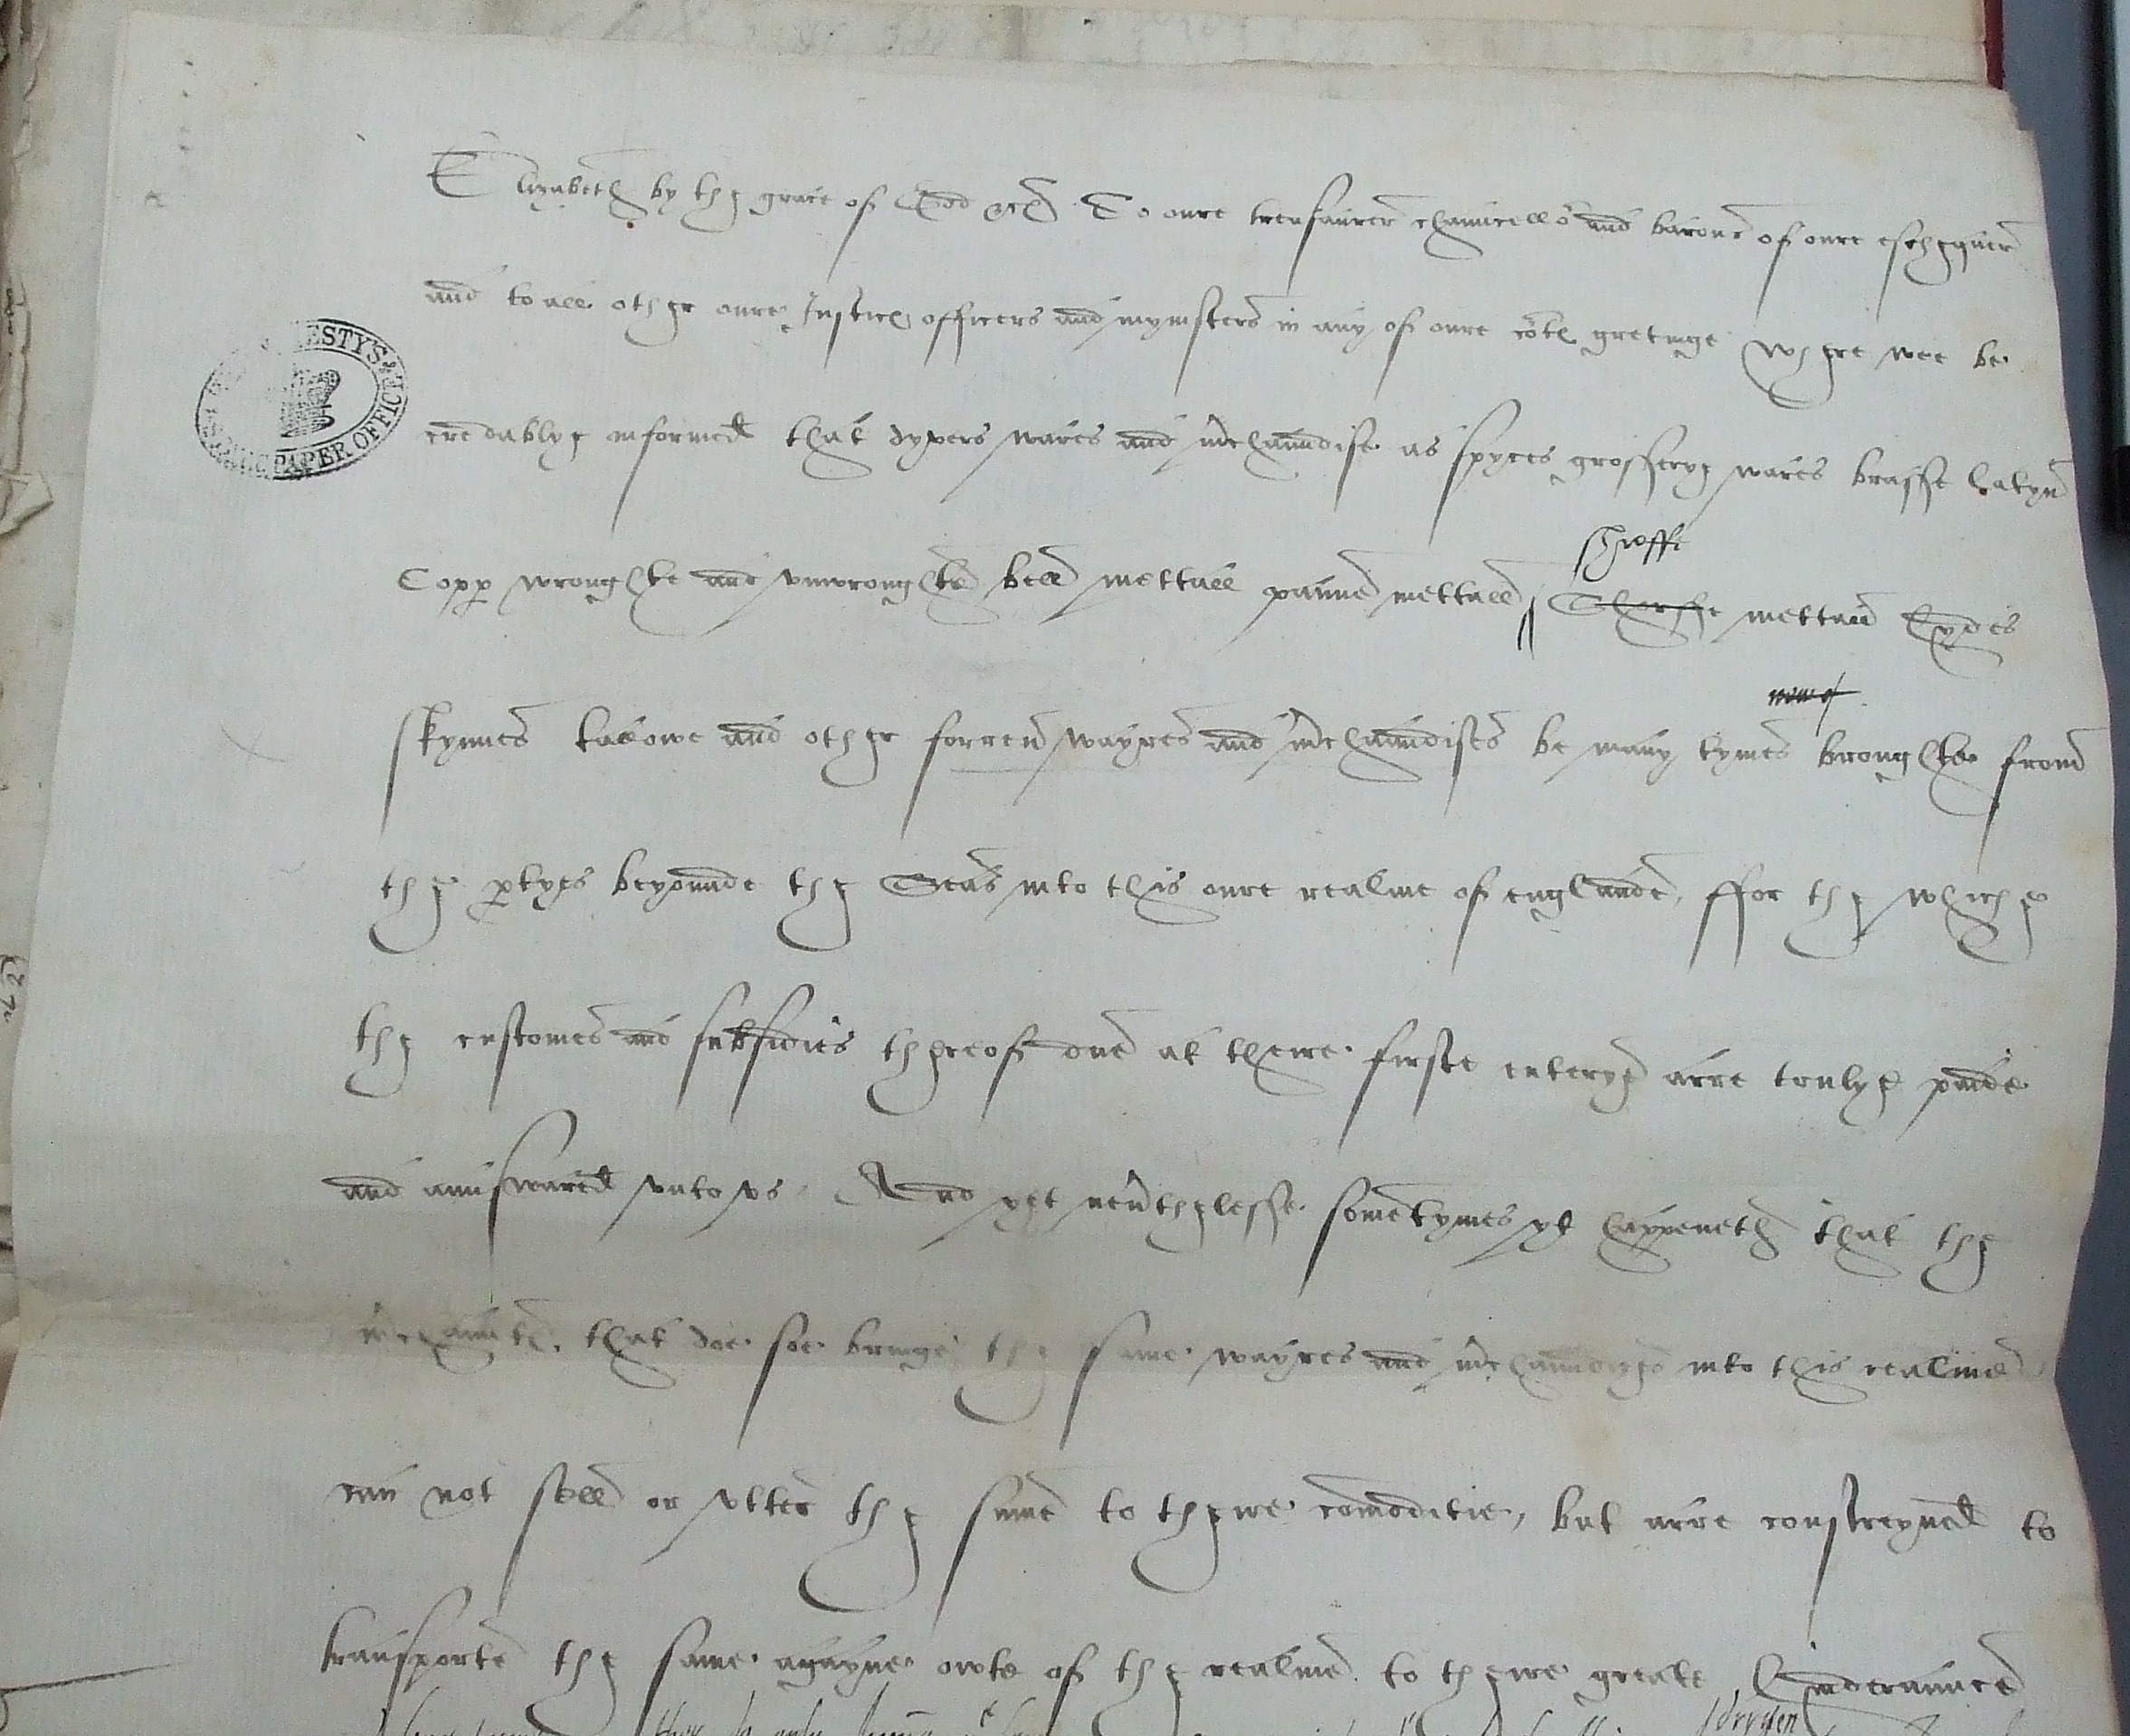 Elizabeth by the grace of God &c To oure treasaurer chauncello and barons of oure escheqquer
and to all other oure Justic officers and mynisters in any of oure cort gretinge where wee be
credablye informed that dyvers wares and mchaundise as spyces grosserye wares brasse Latyn
shroffe
Copp wroughte and vnwroughte bell mettall panne mettall Shroffe mettall hydes
now of
skynnes tallowe and other forren wayres and mchaundises be many tymes broughte from
the ptyes beyounde the Seas into this oure realme of englande, ffor the whiche
the customes and subsidies thereof due at theire firste enterye arre trulye paide
and aunswared vnto vs And yet nevthelesse sometymes yt happeneth that the
mchaunt that doe soe bringe the same wayres and mchaundyes into this realme
can not sell or vtter the same to theire comoditie, but arre constreyned to
transporte the same agayne owte of the realme to theire greate hinderaunce
STYS
PAPER OFFIC